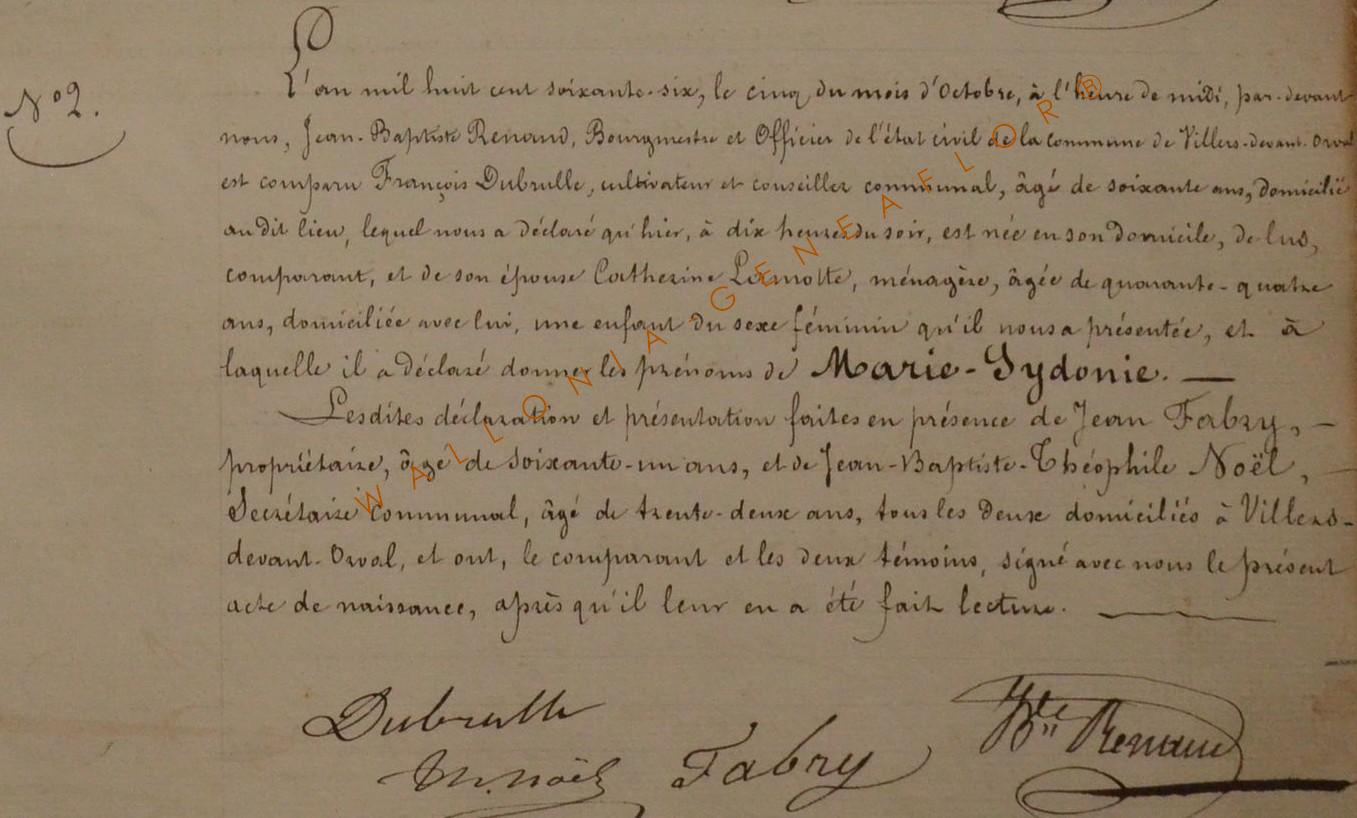 N° 2.
L'an mil huit cent soixante-six, le cinq du mois d'Octobre, à l'heure de midi, par-devant
nous, Jean-Baptiste Renaud, Bourgmestre et Officier de l'état civil de la commune de Villers-devant-Orval
est comparu François Dubrulle, cultivateur et conseiller communal, âgé de soixante ans, domicilié
au dit lieu, lequel nous a déclaré qu'hier, à dix heures du soir, est née en son domicile, de lui,
comparant, et de son épouse Catherine Lamotte, ménagère, âgée de quarante-quatre
ans, domiciliée avec lui, une enfant du sexe féminin qu'il nous a présentée, et à
laquelle il a déclaré donner les prénoms de Marie-Sydonie. —
Lesdites déclaration et présentation faites en présence de Jean Fabry, —
propriétaire, âgé de soixante-un ans, et de Jean-Baptiste-Théophile Noël, —
Secrétaire communal, âgé de trente-deux ans, tous les deux domiciliés à Villers-
devant-Orval, et ont, le comparant et les deux témoins, signé avec nous le présent
acte de naissance, après qu'il leur en a été fait lecture. —
Dubrulle
Noël Fabry Renaud
WALLONIA.GENEAFLORB